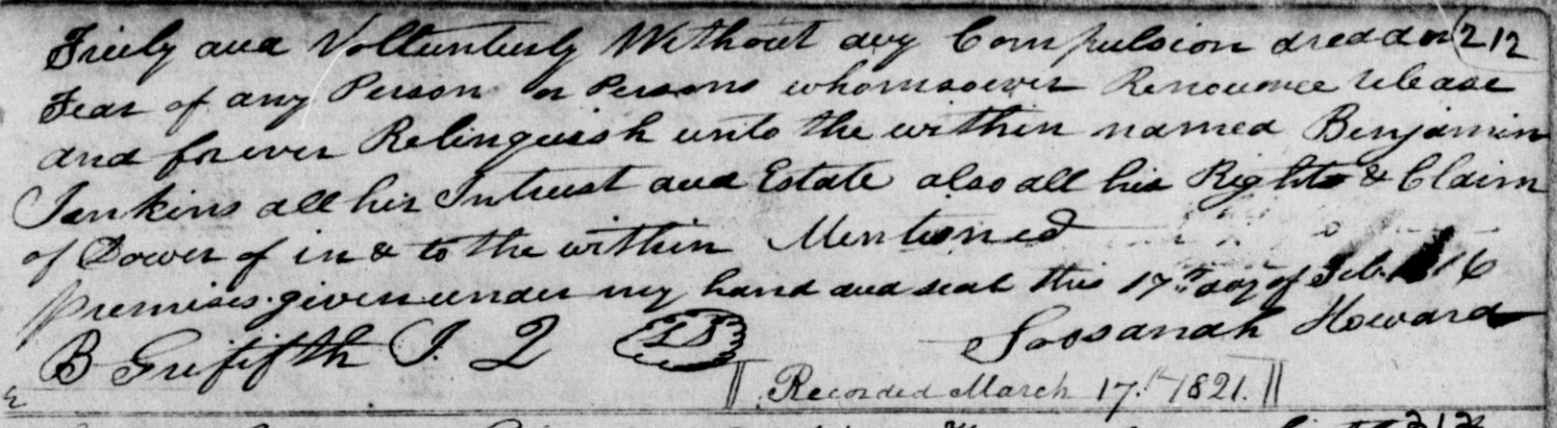 Freely and Volluntusly Without any Compulsion dread or 212
Fear of any Person or Persons whomsoever Renounce release
and forever Relinquish unto the within named Benjamin
Jenkins all his Intrust and Estate also all his Rights & Claim
of Dower of in & to the within Mentioned
Premises given under my hand and seal this 17th day of Feb. 16
B Griffifth J. Q LS Sossanah Howard
Recorded March 17th 1821.